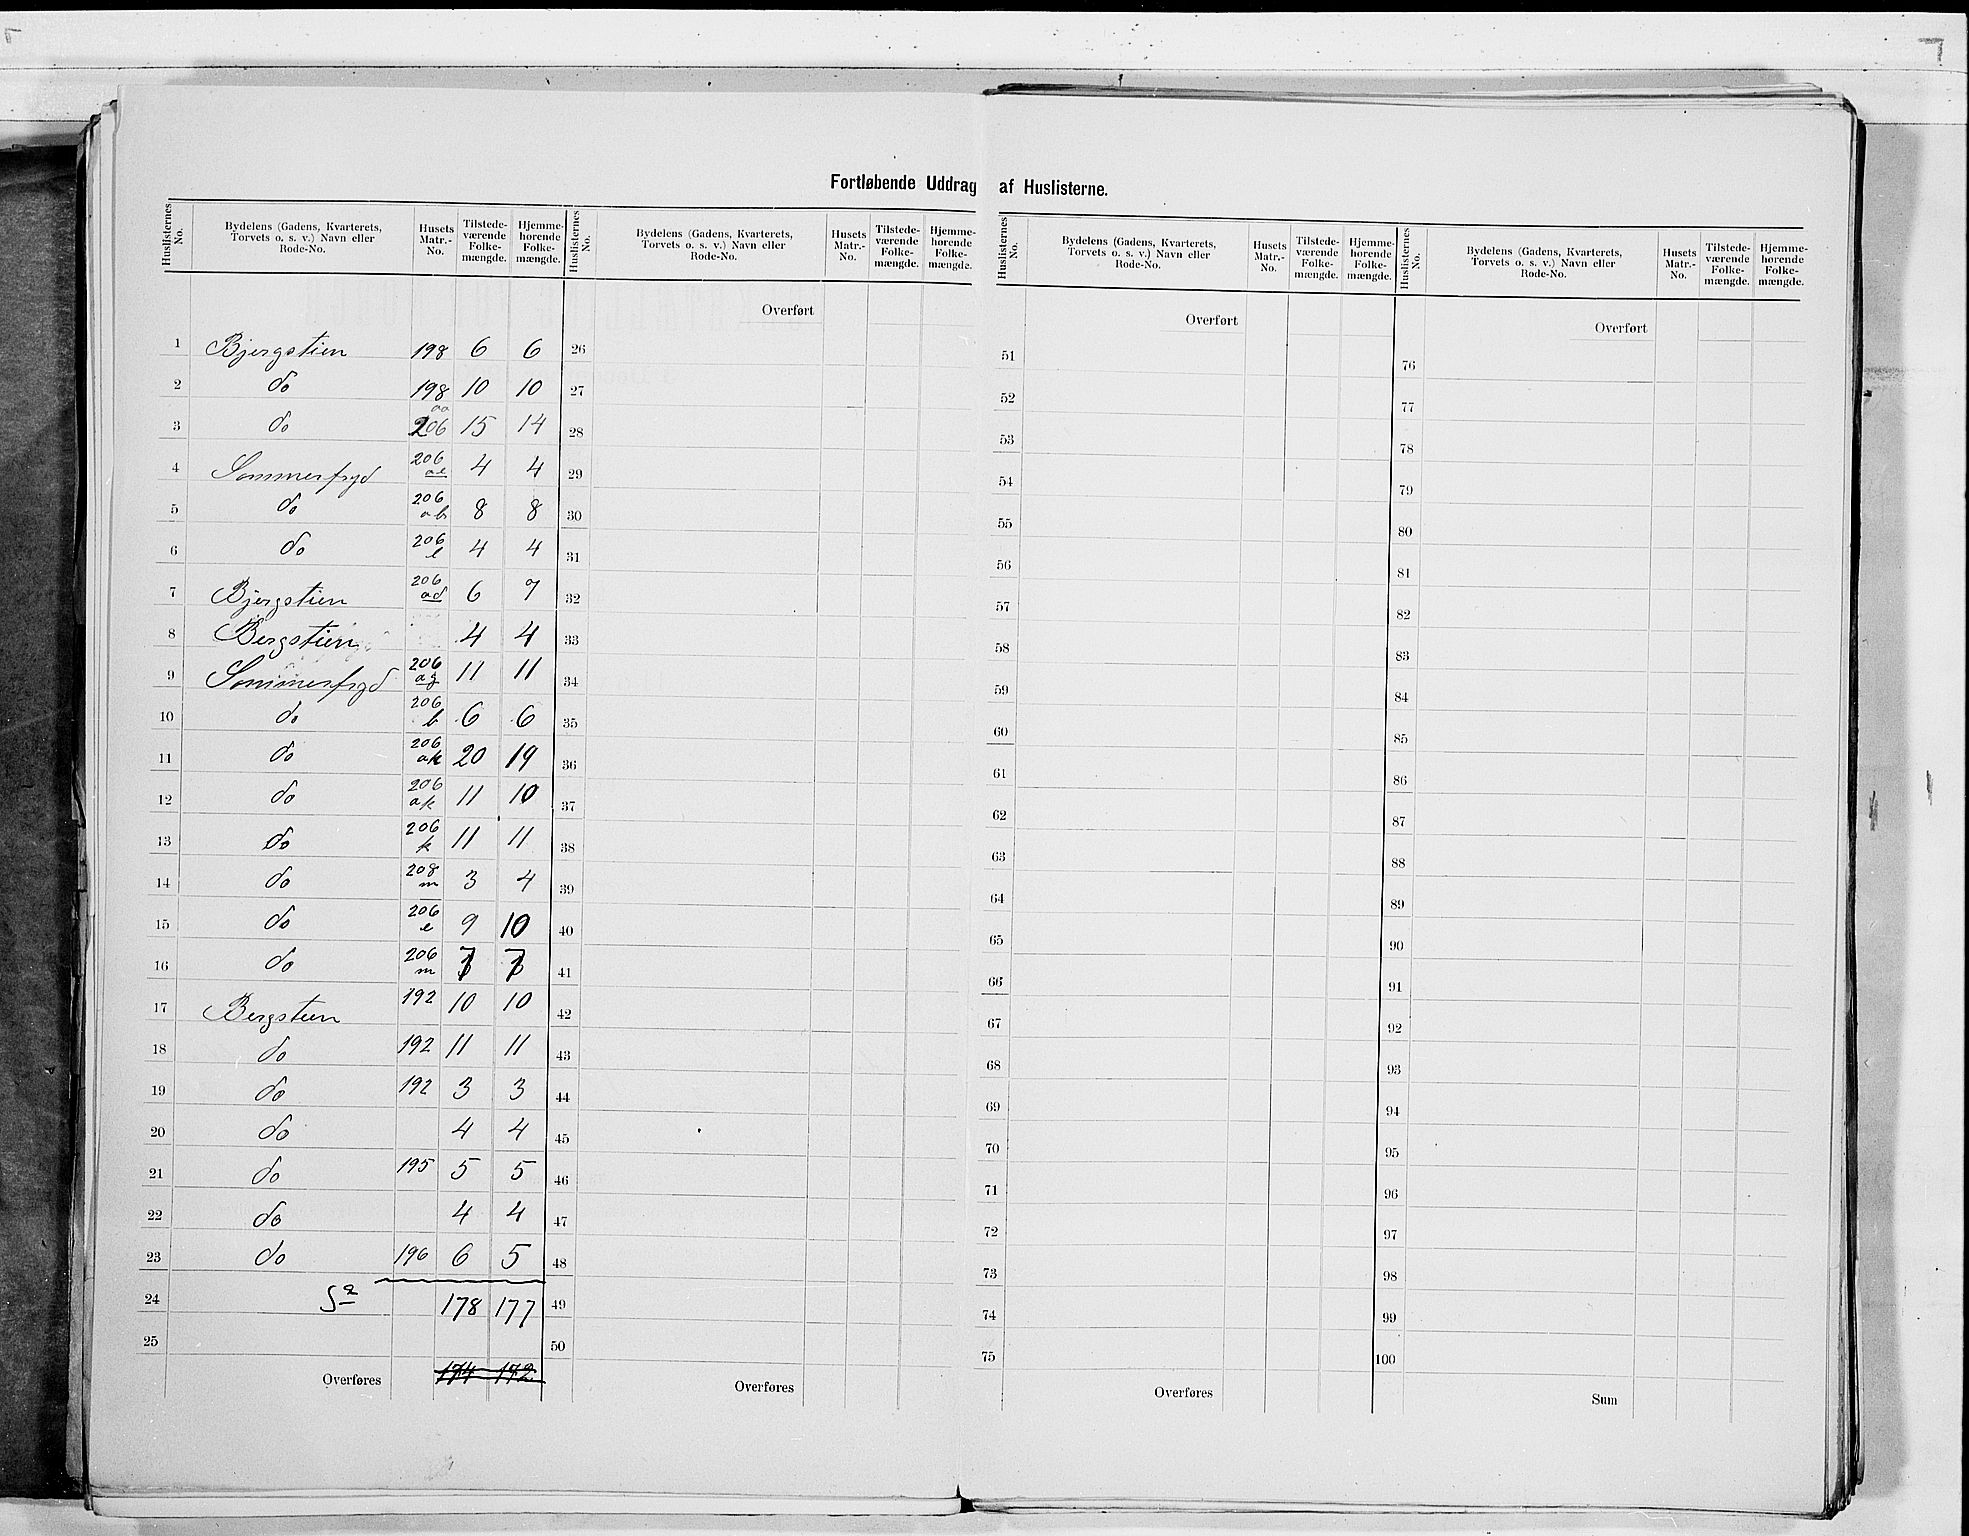 Fortløbende Uddrag af Huslisterne.
Huslisternes No. | Bydelens (Gadens, Kvarterets, Torvets o. s. v.) Navn eller Rode-No. | Husets Matr.-No. | Tilstedeværende Folkemængde. | Hjemmehørende Folkemængde. | Huslisternes No. | Bydelens (Gadens, Kvarterets, Torvets o. s. v.) Navn eller Rode-No. | Husets Matr.-No. | Tilstedeværende Folkemængde. | Hjemmehørende Folkemængde. | Huslisternes No. | Bydelens (Gadens, Kvarterets, Torvets o. s. v.) Navn eller Rode-No. | Husets Matr.-No. | Tilstedeværende Folkemængde. | Hjemmehørende Folkemængde. | Huslisternes No. | Bydelens (Gadens, Kvarterets, Torvets o. s. v.) Navn eller Rode-No. | Husets Matr.-No. | Tilstedeværende Folkemængde. | Hjemmehørende Folkemængde.
Overført | Overført | Overført
1 Bjergstien 198 6 6 26 51 76
2 do 198 10 10 27 52 77
3 do aa 206 15 14 28 53 78
4 Sommerfryd 206 ae 4 4 29 54 79
5 do 206 ab 8 8 30 55 80
6 do 206 l 4 4 31 56 81
7 Bjergstien 206 ad 6 7 32 57 82
8 Bergstien 4 4 33 58 83
9 Sommerfryd 206 ag 11 11 34 59 84
10 do 206 b 6 6 35 60 85
11 do 206 ak 20 19 36 61 86
12 do 206 ak 11 10 37 62 87
13 do 206 k 11 11 38 63 88
14 do 208 m 3 4 39 64 89
15 do 206 e 9 10 40 65 90
16 do 206 m 7 7 41 66 91
17 Bergstien 192 10 10 42 67 92
18 do 192 11 11 43 68 93
19 do 192 3 3 44 69 94
20 do 4 4 45 70 95
21 do 195 5 5 46 71 96
22 do 4 4 47 72 97
23 do 196 6 5 48 73 98
24 Sa 178 177 49 74 99
25 50 75 100
Overføres 174 172 Overføres Overføres Sum